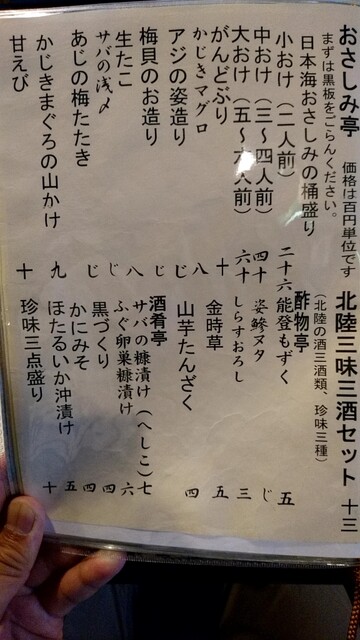 おさしみ亭 価格は百円単位です
まずは黒板をごらんください。
日本海おさしみの桶盛り
小おけ（二人前） 二十六
中おけ（三〜四人前） 四十
大おけ（五〜六人前） 六十
がんどぶり 十
かじきマグロ 八
アジの姿造り じ
梅貝のお造り じ
生たこ 八
サバの浅〆 じ
あじの梅たたき じ
かじきまぐろの山かけ 九
甘えび 十
北陸三味三酒セット 十三
（北陸の酒三酒類、珍味三種）
酢物亭
能登もずく 五
姿鯵ヌタ じ
しらすおろし 三
金時草 五
山芋たんざく 四
酒肴亭
サバの糠漬け（へしこ） 七
ふぐ卵巣糠漬け 六
黒づくり 四
かにみそ 四
ほたるいか沖漬け 五
珍味三点盛り 十